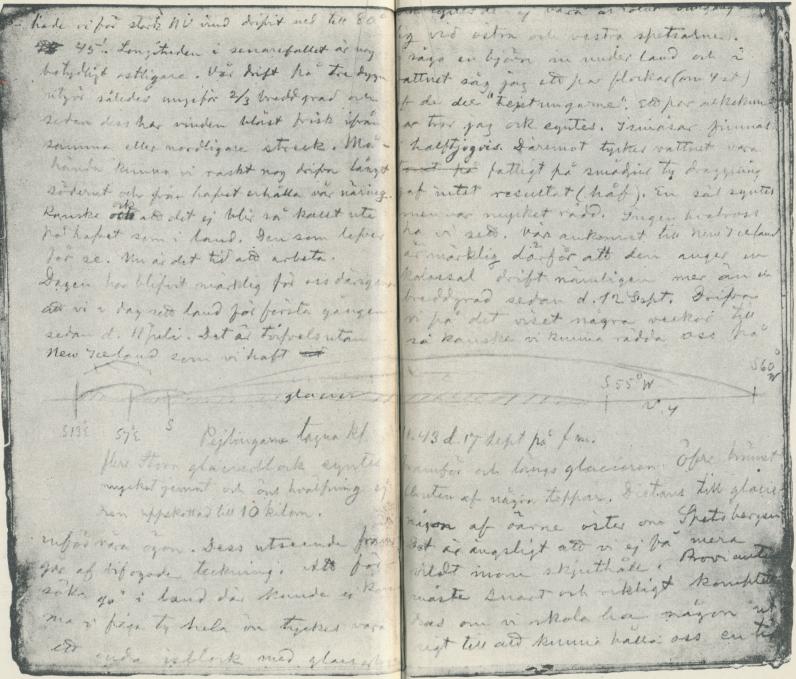 hade vi för stark NV vind drifvit ned till 80°
45'. Longituden i senare fallet är nog
betydligt ostligare. Vår drift på tre dygn
utgör således ungefär 2/3 breddgrad och
sedan dess har vinden blåst frisk ifrån
samma eller nordligare streck. Må-
hända kunna vi raskt nog drifva långt
söderut och från hafvet erhålla vår näring.
Kanske också att det ej blir så kallt ute
på hafvet som i land. Den som lefver
får se. Nu är det tid att arbeta.
Dagen har blifvit märklig för oss därigenom
att vi i dag sett land för första gången
sedan d. 11 juli. Det är tvifvelsutan
New Iceland som vi haft
glacier
S13°E S7°E S
Pejlingarne tagna kl.
flere stora glacierblock syntes
mycket jemnt och öns hvälfning ej
ren uppskattad till 10 kilom.
inför våra ögon. Dess utseende fram
går af bifogade teckning. Att för
söka gå i land där kunde ej kom
ma i fråga ty hela ön tyckes vara
ett enda isblock med glacier
vid östra och vestra spetsarne.
såga en björn in under land och i
vattnet såg jag ett par flockar (om 4 st)
af de der "teistungarne". Ett par alkekungar
tror jag ock syntes. Ismåsar finnas
halftjogvis. Däremot tyckes vattnet vara
fattigt på smådjur ty draggning
gaf intet resultat (håf). En säl syntes
men var mycket rädd. Ingen hvalross
ha vi sett. Vår ankomst till New Iceland
är märklig därför att den anger en
kolossal drift nämligen mer än en
breddgrad sedan d. 12 Sept. Drifva
vi på det viset några veckor till
så kanske vi kunna rädda oss på
S 55° W
S 60° W
V. 4
11.43 d. 17 Sept på f.m.
framför och längs glacieren. Öfre
sluten af någon toppar. Distans till glacie
någon af öarne öster om Spetsbergen
Det är ängsligt att vi ej få mera
vildt inom skjuthåll. Provianten
måste snart och riktigt komplette
ras om vi skola ha någon ut
sigt till att kunna hålla oss en tid